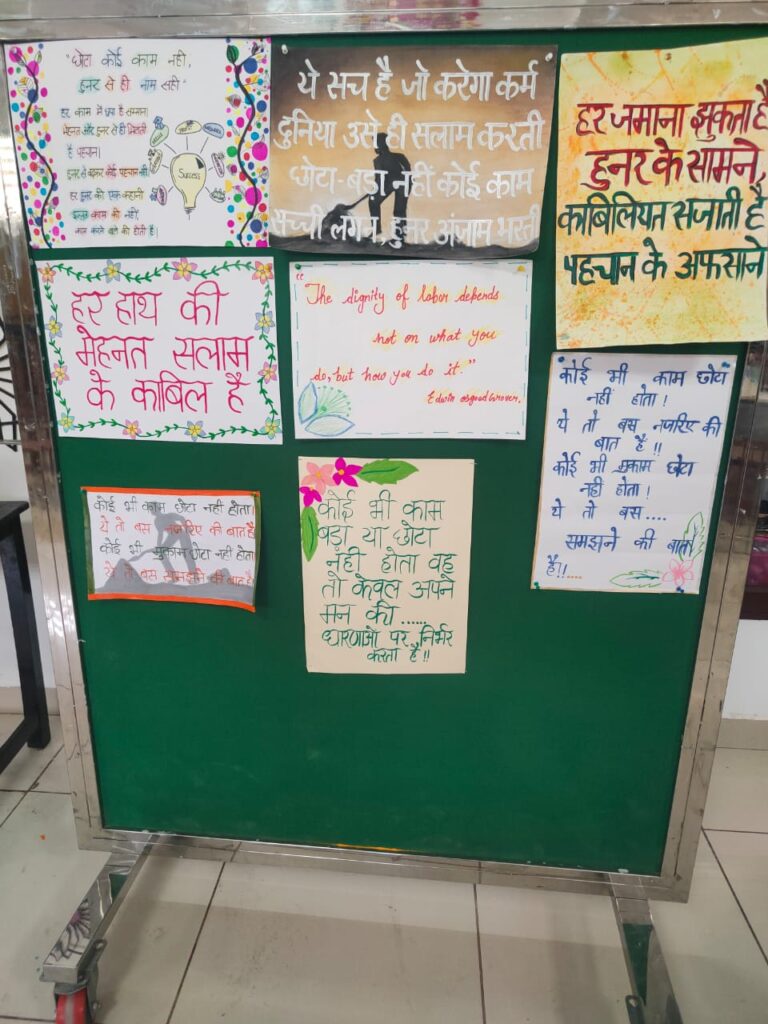 "छोटा कोई काम नही,
हुनर से ही नाम सही"
हर काम में छुपा है सम्मान
मेहनत और हुनर से ही मिलती
है पहचान।
हुनर से बढ़कर कोई पहचान नही
हर हुनर की एक कहानी
इज्जत काम की नहीं
काम करने वाले की होती है।
Success
ये सच है जो करेगा कर्म
दुनिया उसे ही सलाम करती
छोटा-बड़ा नहीं कोई काम
सच्ची लगन, हुनर अंजाम भरती
हर जमाना झुकता है
हुनर के सामने,
काबिलियत सजाती है
पहचान के अफसाने
हर हाथ की
मेहनत सलाम
के काबिल है
"The dignity of labor depends
not on what you
do, but how you do it."
Edwin osgood Grover.
कोई भी काम छोटा
नहीं होता!
ये तो बस नजरिए की
बात है!!
कोई भी मुकाम छोटा
नही होता!
ये तो बस....
समझने की बात
है!!....
कोई भी काम छोटा नही होता।
ये तो बस नजरिए की बात है
कोई भी मुकाम छोटा नही होता
ये तो बस समझने की बात है
कोई भी काम
बड़ा या छोटा
नहीं होता वह
तो केवल अपने
मन की.....
धारणाओ पर निर्भर
करता है!!